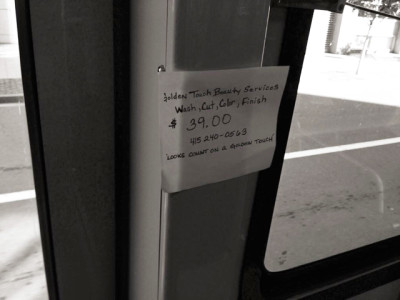 Golden Touch Beauty Services
Wash, Cut, Color, Finish
$ 39.00
415 240-0563
"LOOKS COUNT ON A GOLDEN TOUCH"